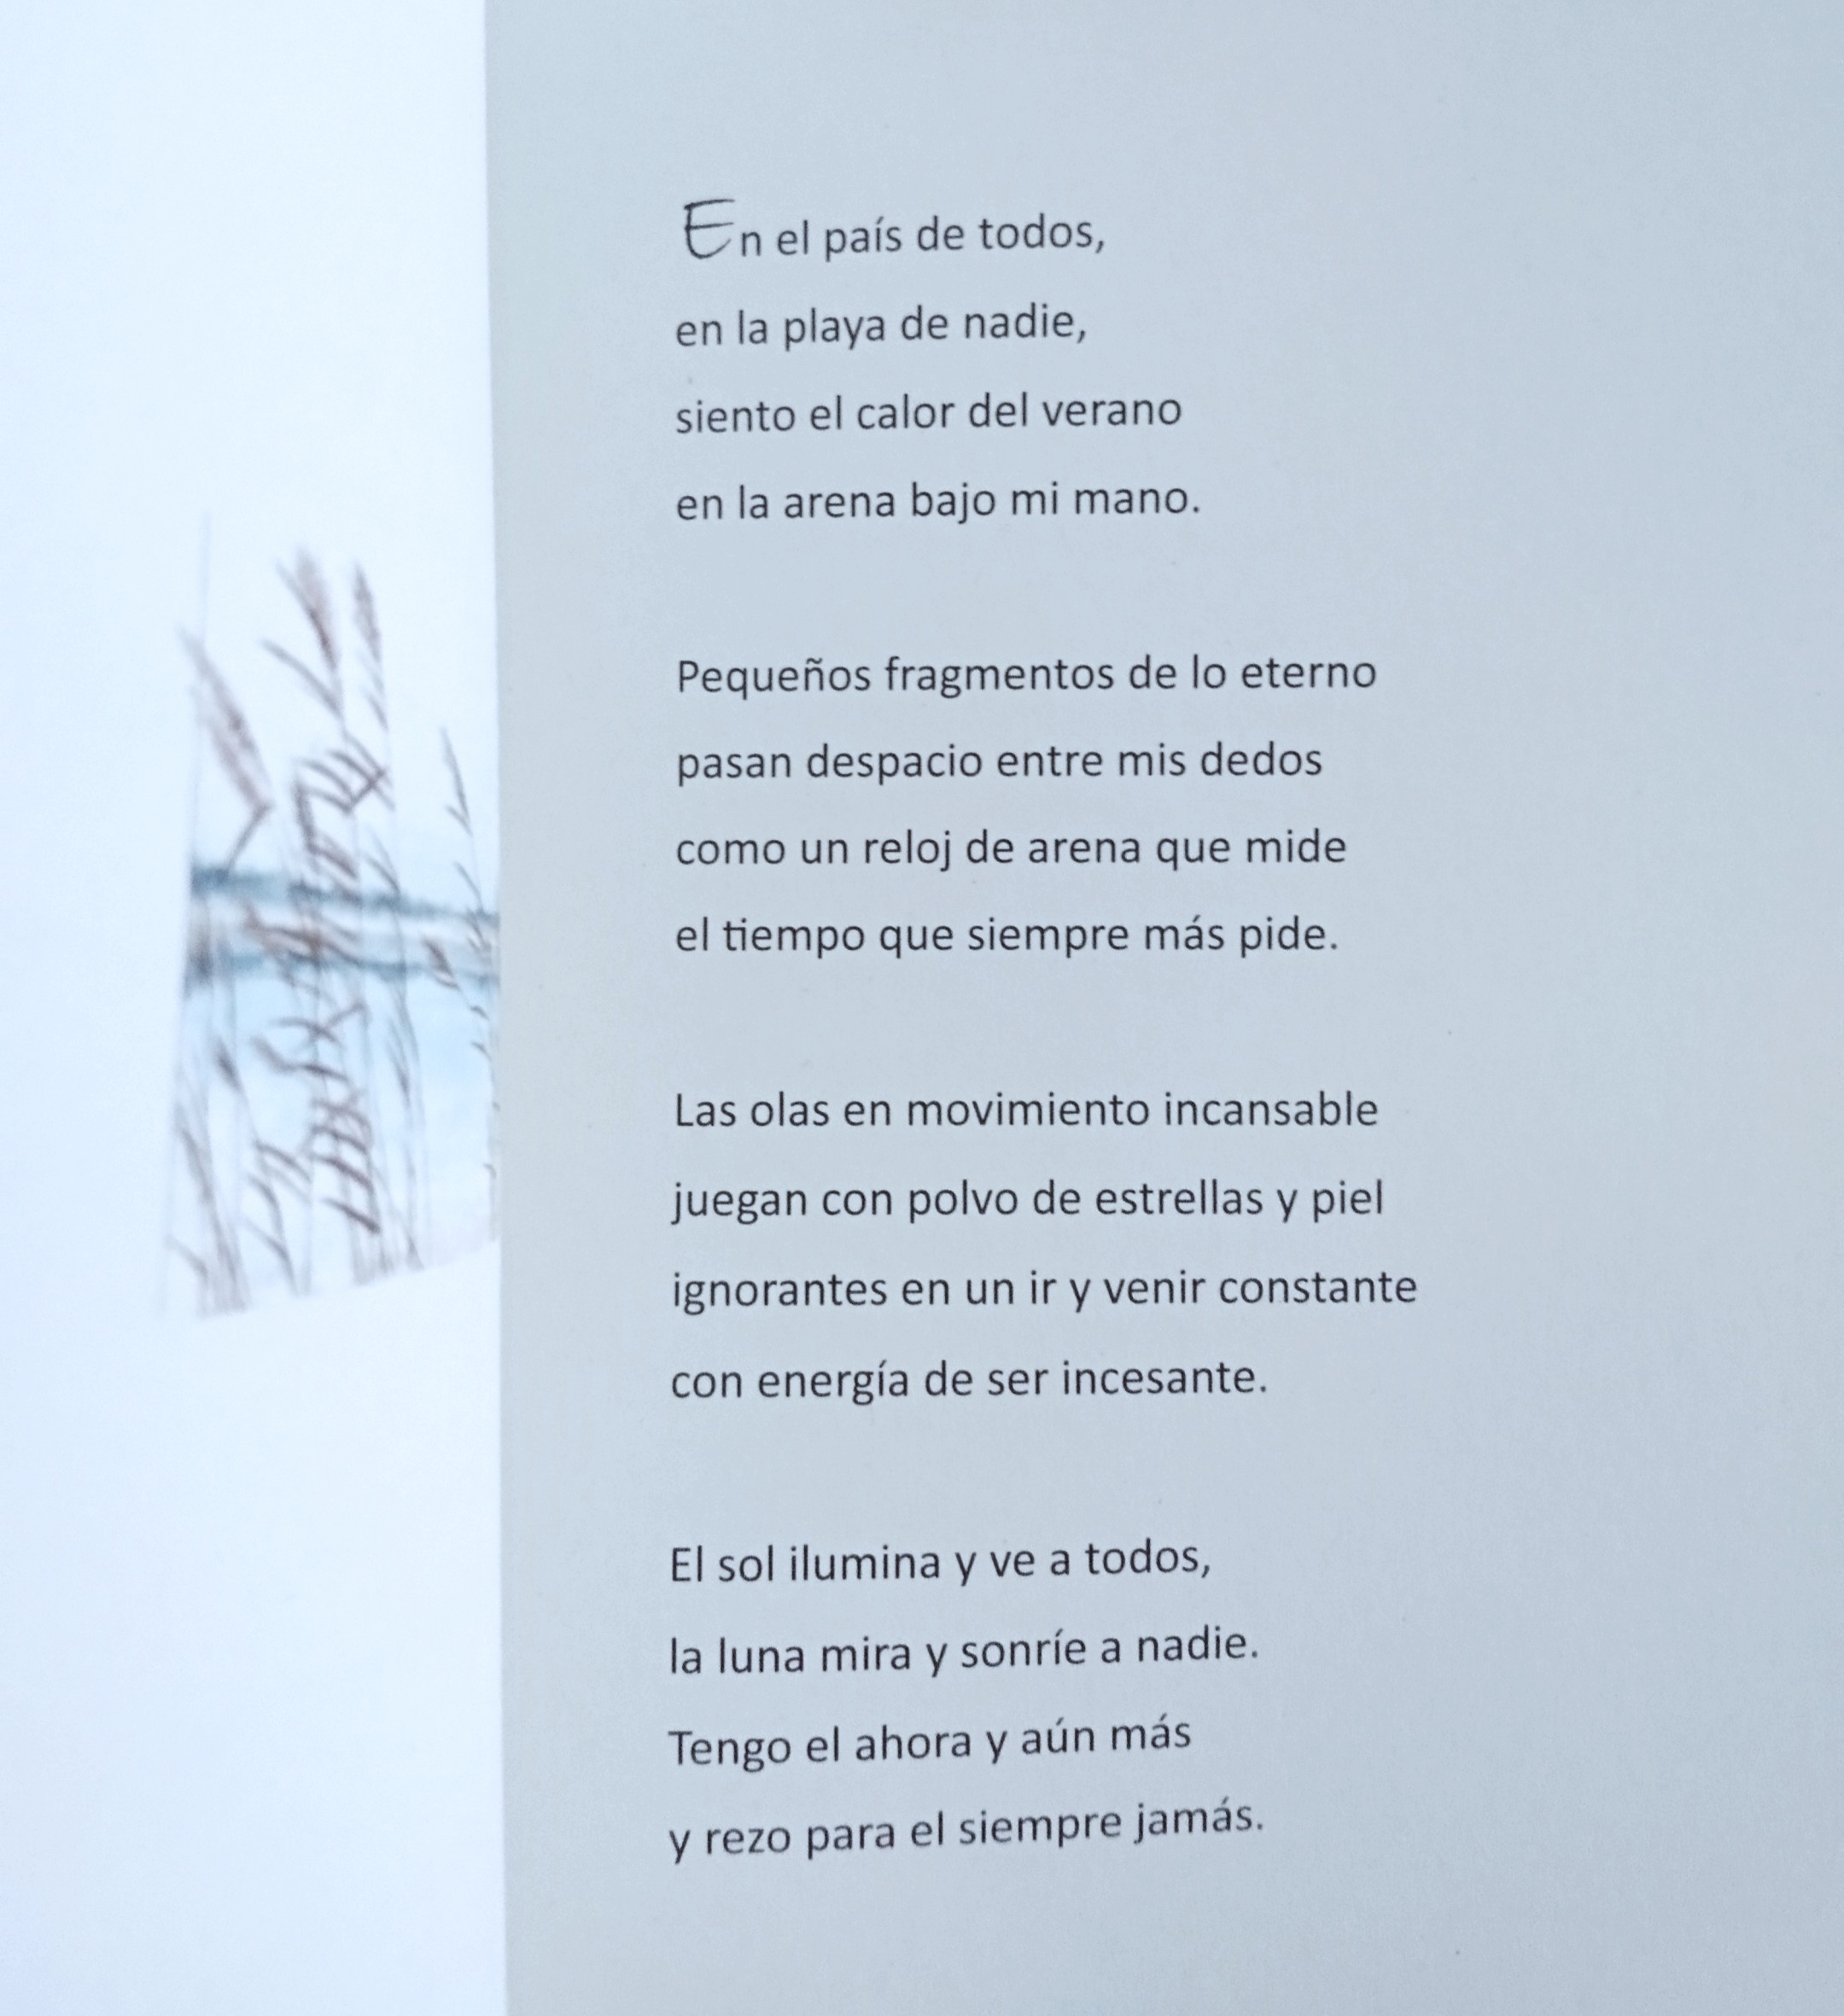 En el país de todos,
en la playa de nadie,
siento el calor del verano
en la arena bajo mi mano.
Pequeños fragmentos de lo eterno
pasan despacio entre mis dedos
como un reloj de arena que mide
el tiempo que siempre más pide.
Las olas en movimiento incansable
juegan con polvo de estrellas y piel
ignorantes en un ir y venir constante
con energía de ser incesante.
El sol ilumina y ve a todos,
la luna mira y sonríe a nadie.
Tengo el ahora y aún más
y rezo para el siempre jamás.